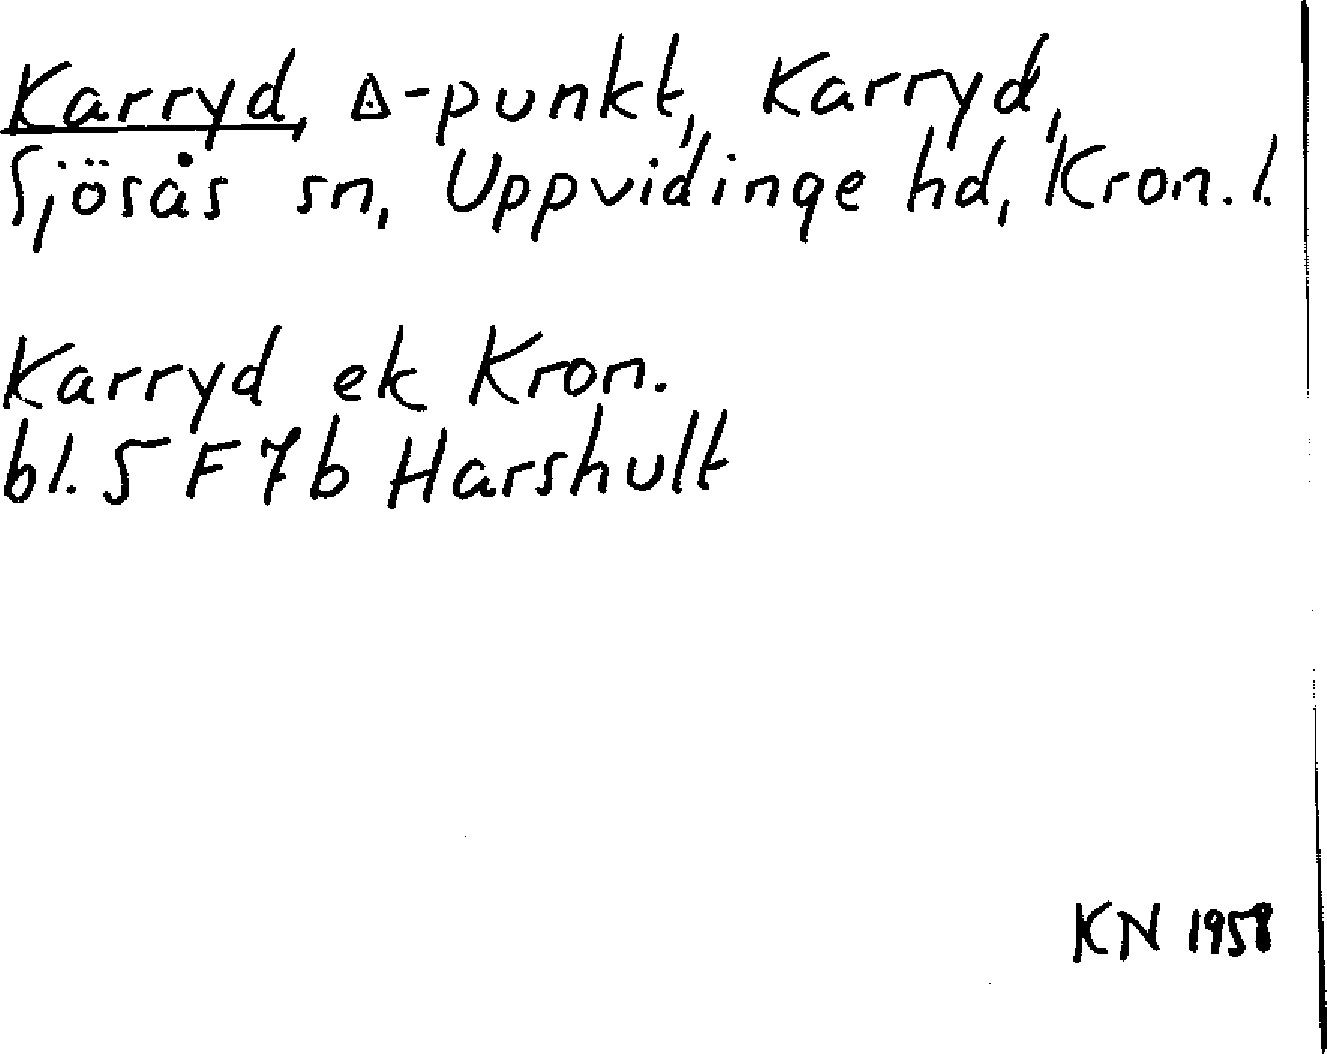 Karryd, △-punkt, Karryd,
Sjösås sn, Uppvidinge hd, Kron. l.
Karryd ek Kron.
bl. 5 F 7 b Harshult
KN 1958